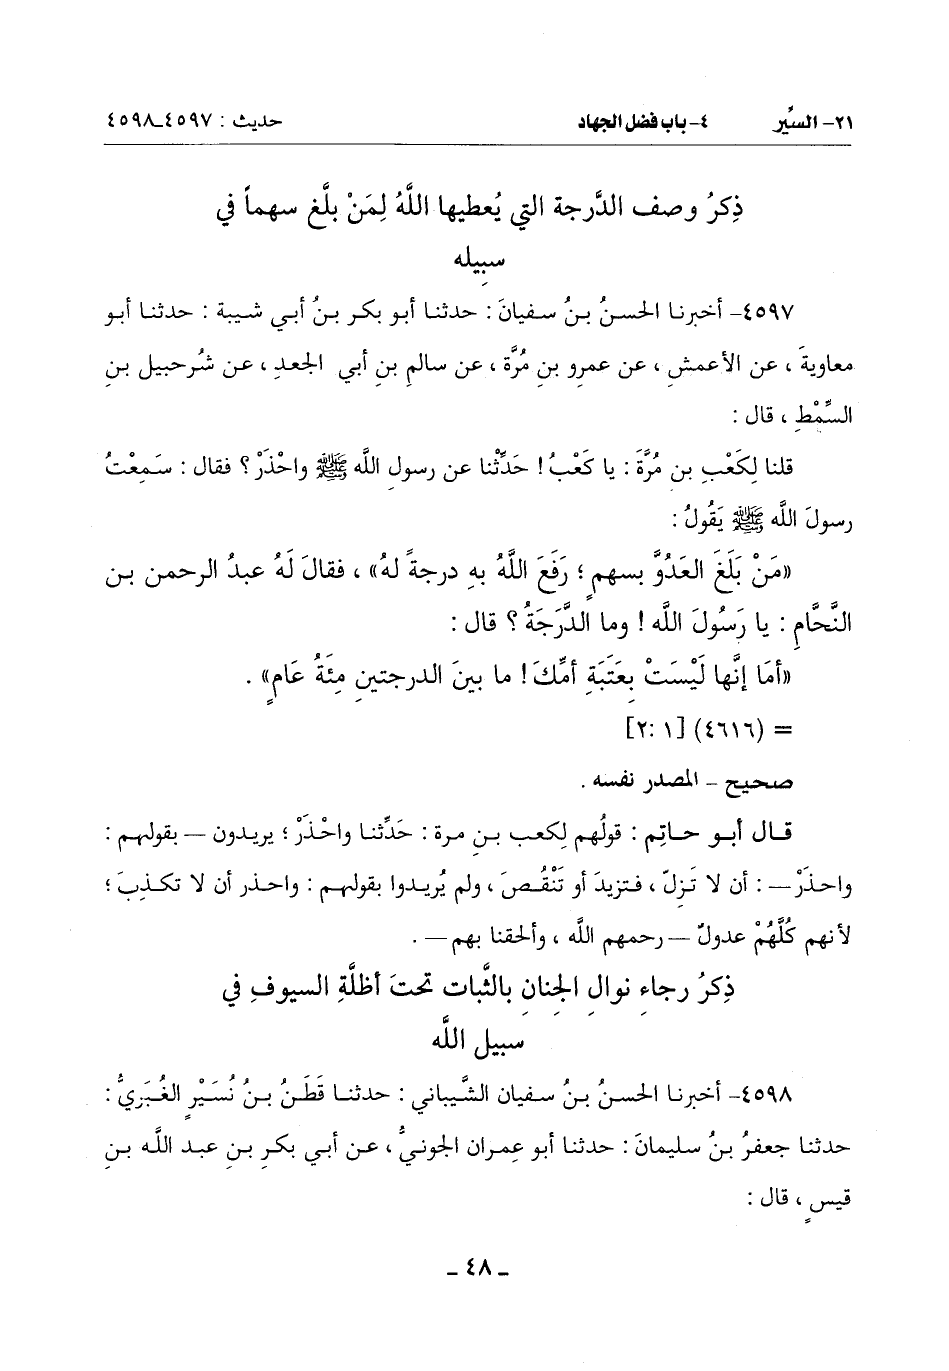 ٢١- السِّير ٤- باب فضل الجهاد حديث : ٤٥٩٧ـ٤٥٩٨
ذِكرُ وصف الدَّرجة التي يُعطيها اللَّهُ لِمَنْ بلَّغ سهماً في
سبيله
٤٥٩٧- أخبرنا الحسنُ بنُ سفيانَ : حدثنا أبو بكر بنُ أبي شيبة : حدثنا أبو
معاويةَ ، عن الأعمشِ ، عن عمرِو بنِ مُرَّة ، عن سالمِ بنِ أبي الجعدِ ، عن شُرحبيل بنِ
السِّمْطِ ، قال :
قلنا لِكَعْبِ بن مُرَّةَ : يا كَعْبُ ! حَدِّثْنا عن رسولِ اللَّه ﷺ واحْذَرْ ؟ فقال : سَمِعْتُ
رسولَ اللَّه ﷺ يَقُولُ :
«مَنْ بَلَغَ العَدُوَّ بسهمٍ ؛ رَفَعَ اللَّهُ بِهِ درجةً لهُ» ، فقالَ لَهُ عبدُ الرحمن بن
النَّحَّامِ : يا رَسُولَ اللَّه ! وما الدَّرَجَةُ ؟ قال :
«أمَا إنَّها لَيْسَتْ بِعَتَبَةِ أمِّكَ ! ما بينَ الدرجتينِ مِئَةُ عَامٍ» .
= (٤٦١٦) [١ :٢]
صحيح - المصدر نفسه .
قال أبو حاتِم : قولُهم لِكعب بنِ مرة : حَدِّثنا واحْذَرْ ؛ يريدون — بقولهم :
واحذَرْ — : أن لا تَزِلّ ، فتزيدَ أو تَنْقُصَ ، ولم يُريدوا بقولهم : واحذر أن لا تكذِبَ ؛
لأنهم كُلَّهُمْ عدولٌ — رحمهم اللَّه ، وألحقنا بهم — .
ذِكرُ رجاءِ نوالِ الجِنانِ بالثَّبات تحتَ أظلَّةِ السيوفِ في
سبيل اللَّه
٤٥٩٨- أخبرنا الحسنُ بنُ سفيان الشَّيباني : حدثنا قَطَنُ بنُ نُسَيْرٍ الغُبَرِيُّ :
حدثنا جعفرُ بنُ سليمانَ : حدثنا أبو عِمران الجونيُّ ، عن أبي بكرِ بنِ عبد اللَّه بنِ
قيسٍ ، قال :
ـ ٤٨ ـ